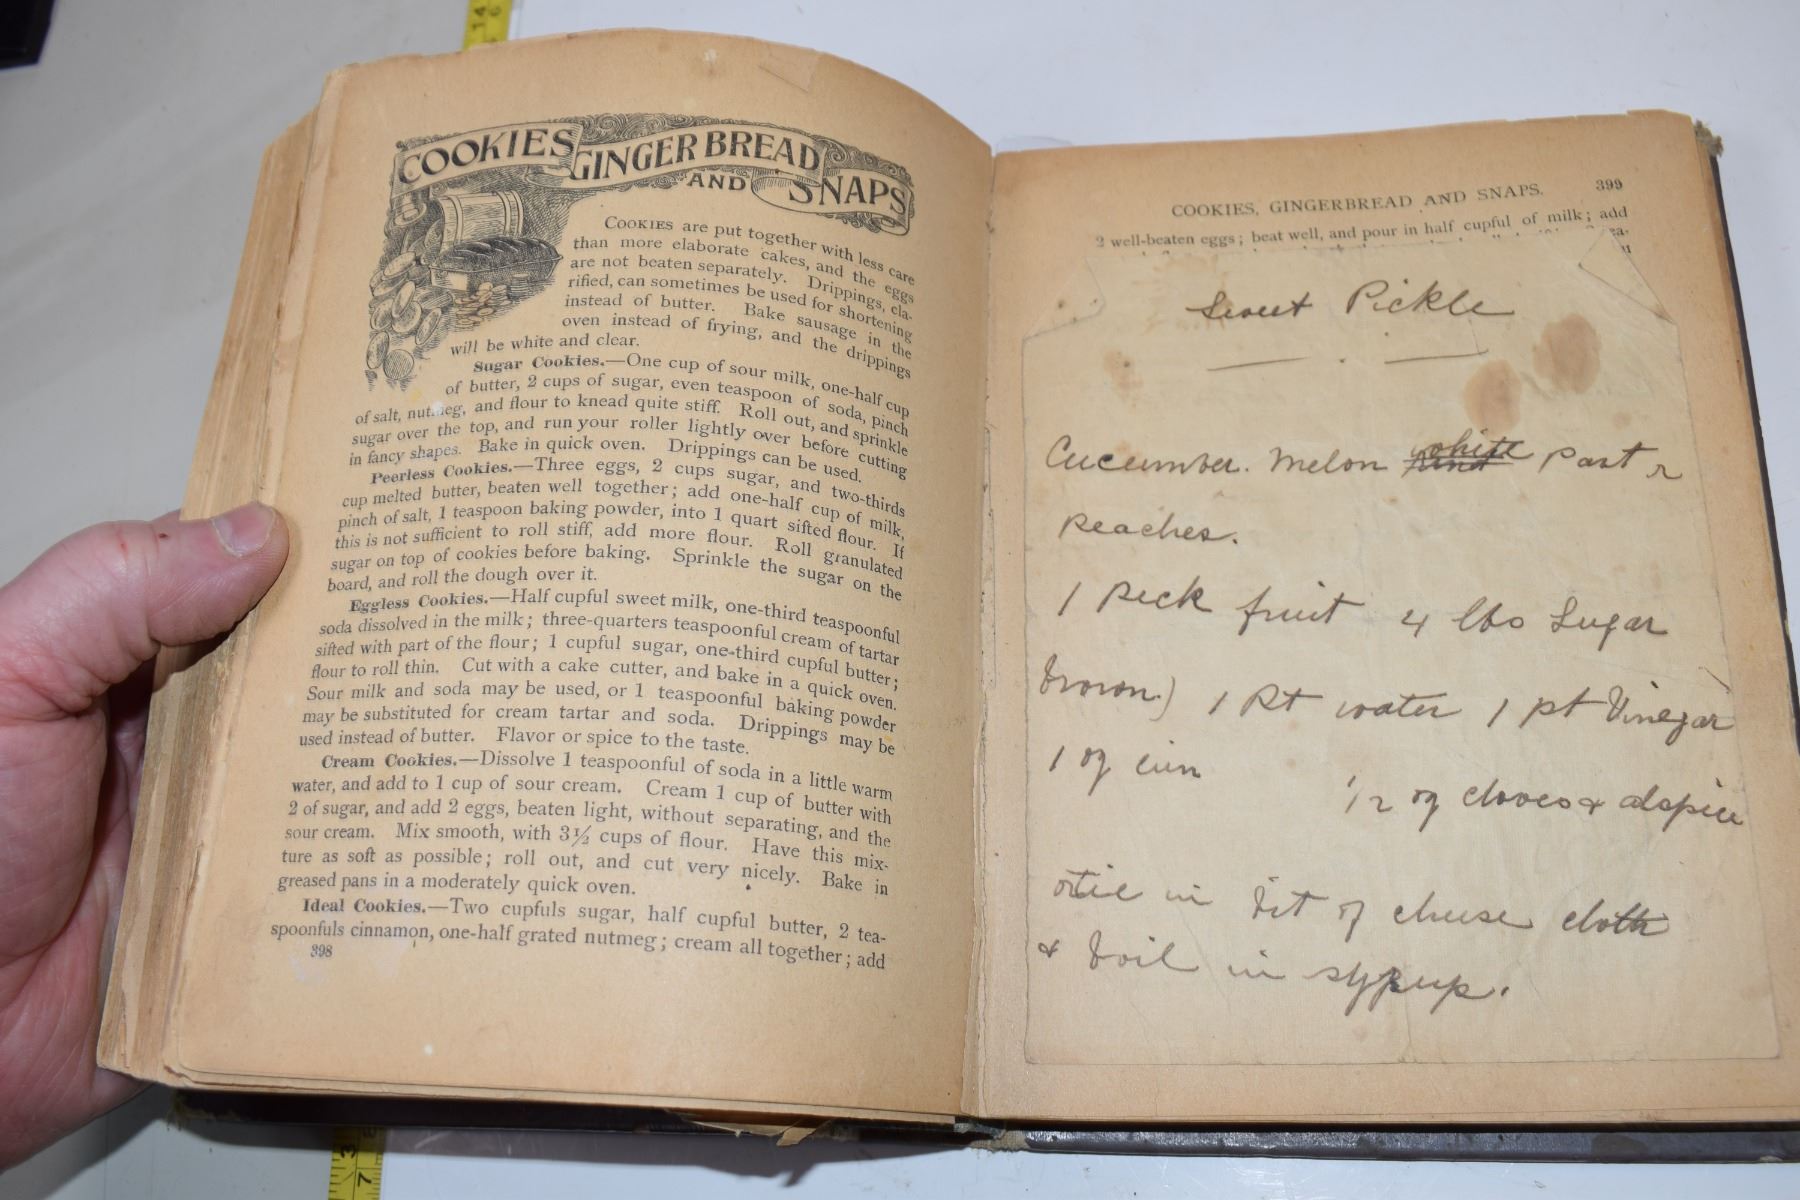 COOKIES GINGERBREAD
AND SNAPS
COOKIES are put together with less care
than more elaborate cakes, and the eggs
are not beaten separately. Drippings, cla-
rified, can sometimes be used for shortening
instead of butter. Bake sausage in the
oven instead of frying, and the drippings
will be white and clear.
Sugar Cookies.—One cup of sour milk, one-half cup
of butter, 2 cups of sugar, even teaspoon of soda, pinch
of salt, nutmeg, and flour to knead quite stiff. Roll out, and sprinkle
sugar over the top, and run your roller lightly over before cutting
in fancy shapes. Bake in quick oven. Drippings can be used.
Peerless Cookies.—Three eggs, 2 cups sugar, and two-thirds
cup melted butter, beaten well together; add one-half cup of milk,
pinch of salt, 1 teaspoon baking powder, into 1 quart sifted flour. If
this is not sufficient to roll stiff, add more flour. Roll granulated
sugar on top of cookies before baking. Sprinkle the sugar on the
board, and roll the dough over it.
Eggless Cookies.—Half cupful sweet milk, one-third teaspoonful
soda dissolved in the milk; three-quarters teaspoonful cream of tartar
sifted with part of the flour; 1 cupful sugar, one-third cupful butter;
flour to roll thin. Cut with a cake cutter, and bake in a quick oven.
Sour milk and soda may be used, or 1 teaspoonful baking powder
may be substituted for cream tartar and soda. Drippings may be
used instead of butter. Flavor or spice to the taste.
Cream Cookies.—Dissolve 1 teaspoonful of soda in a little warm
water, and add to 1 cup of sour cream. Cream 1 cup of butter with
2 of sugar, and add 2 eggs, beaten light, without separating, and the
sour cream. Mix smooth, with 3½ cups of flour. Have this mix-
ture as soft as possible; roll out, and cut very nicely. Bake in
greased pans in a moderately quick oven.
Ideal Cookies.—Two cupfuls sugar, half cupful butter, 2 tea-
spoonfuls cinnamon, one-half grated nutmeg; cream all together; add
398
COOKIES, GINGERBREAD AND SNAPS. 399
2 well-beaten eggs; beat well, and pour in half cupful of milk; add
Sweet Pickle
Cucumber. Melon white part &
peaches.
1 Peck fruit 4 lbs Sugar
brown) 1 Pt water 1 pt Vinegar
1 oz cin
1/2 oz cloves & alspice
tie in bit of cheese cloth
& boil in syrup.
14
3
7